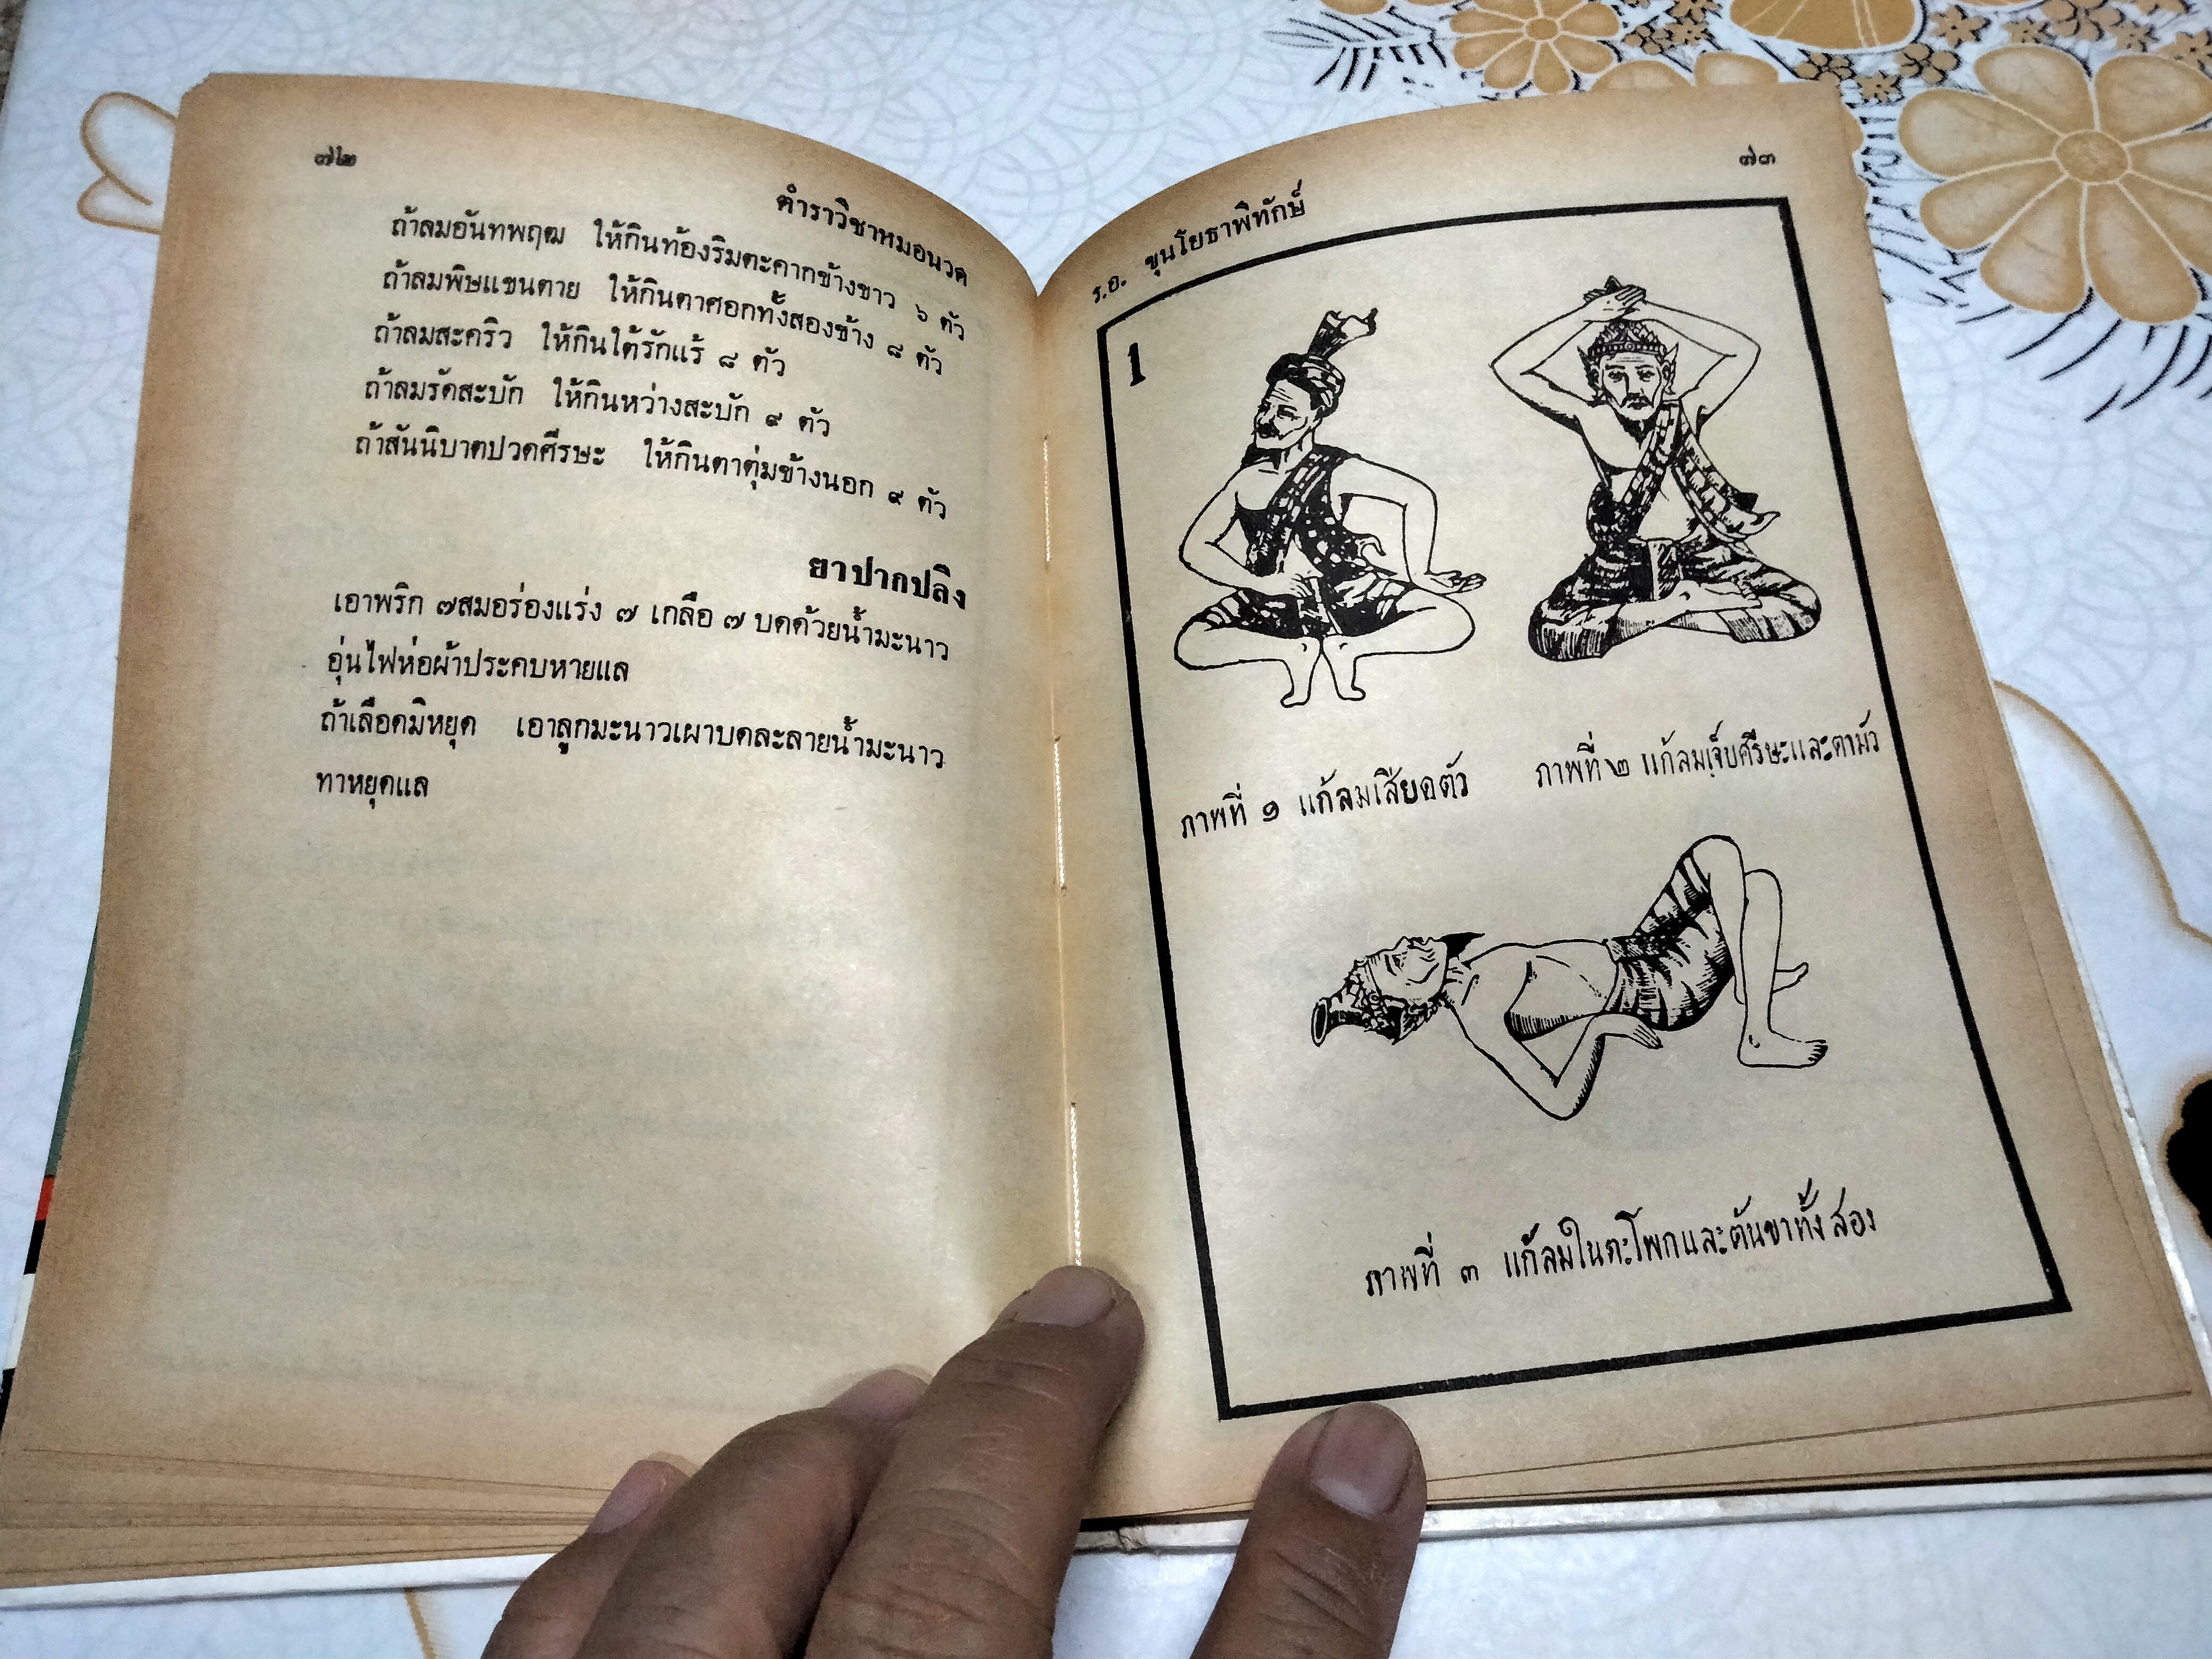 ๗๒
ตำราวิชาหมอนวด
ถ้าลมอันทพฤฒ ให้กินท้องริมตะคากข้างขาว ๖ ตัว
ถ้าลมพิษแขนตาย ให้กินตาศอกทั้งสองข้าง ๘ ตัว
ถ้าลมสะคริว ให้กินใต้รักแร้ ๘ ตัว
ถ้าลมรัดสะบัก ให้กินหว่างสะบัก ๙ ตัว
ถ้าสันนิบาตปวดศีรษะ ให้กินตาตุ่มข้างนอก ๙ ตัว
ยาปากปลิง
เอาพริก ๗สมอร่องแร่ง ๗ เกลือ ๗ บดด้วยน้ำมะนาว
อุ่นไฟห่อผ้าประคบหายแล
ถ้าเลือดมิหยุด เอาลูกมะนาวเผาบดละลายน้ำมะนาว
ทาหยุดแล
ร.อ. ขุนโยธาพิทักษ์
๗๓
1
ภาพที่ ๑ แก้ลมเสียดตัว
ภาพที่ ๒ แก้ลมเจ็บศีรษะและตามัว
ภาพที่ ๓ แก้ลมในตะโพกและต้นขาทั้งสอง